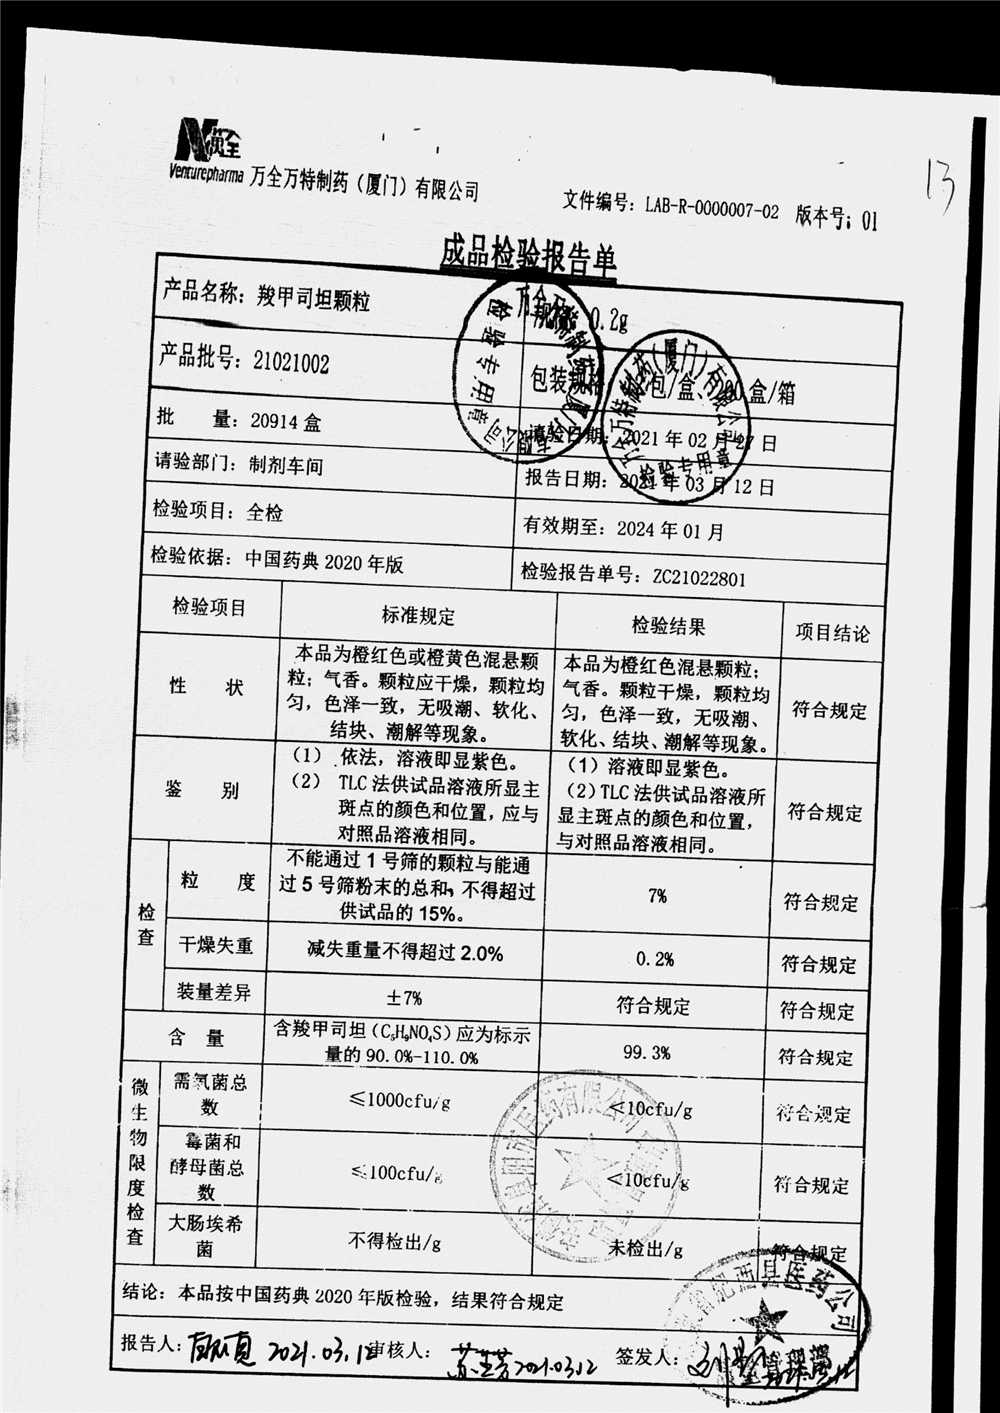 13
万全
Venturepharma 万全万特制药（厦门）有限公司
文件编号：LAB-R-0000007-02 版本号：01
成品检验报告单
产品名称：羧甲司坦颗粒
规格：0.2g
产品批号：21021002
包装规格 包/盒、200盒/箱
批 量：20914盒
请验日期：2021年02月27日
请验部门：制剂车间
报告日期：2021年03月12日
检验项目：全检
有效期至：2024年01月
检验依据：中国药典2020年版
检验报告单号：ZC21022801
检验项目 标准规定 检验结果 项目结论
性 状
本品为橙红色或橙黄色混悬颗
粒；气香。颗粒应干燥，颗粒均
匀，色泽一致，无吸潮、软化、
结块、潮解等现象。
本品为橙红色混悬颗粒；
气香。颗粒干燥，颗粒均
匀，色泽一致，无吸潮、
软化、结块、潮解等现象。
符合规定
鉴 别
（1） 依法，溶液即显紫色。
（2） TLC法供试品溶液所显主
斑点的颜色和位置，应与
对照品溶液相同。
（1）溶液即显紫色。
（2）TLC法供试品溶液所
显主斑点的颜色和位置，
与对照品溶液相同。
符合规定
检查
粒 度
不能通过1号筛的颗粒与能通
过5号筛粉末的总和，不得超过
供试品的15%。
7%
符合规定
干燥失重 减失重量不得超过2.0% 0.2% 符合规定
装量差异 ±7% 符合规定 符合规定
含 量
含羧甲司坦（C₅H₉NO₄S）应为标示
量的90.0%-110.0%
99.3%
符合规定
微生物限度检查
需氧菌总
数
≤1000cfu/g
<10cfu/g
符合规定
霉菌和
酵母菌总
数
≤100cfu/g
<10cfu/g
符合规定
大肠埃希
菌
不得检出/g
未检出/g
符合规定
结论：本品按中国药典2020年版检验，结果符合规定
报告人： 2021.03.12 审核人： 2021.03.12 签发人：
万全万特制药（厦门）有限公司
检验专用章
万全万特制药（厦门）有限公司
检验专用章
医药有限公司
省肥西县医药公司